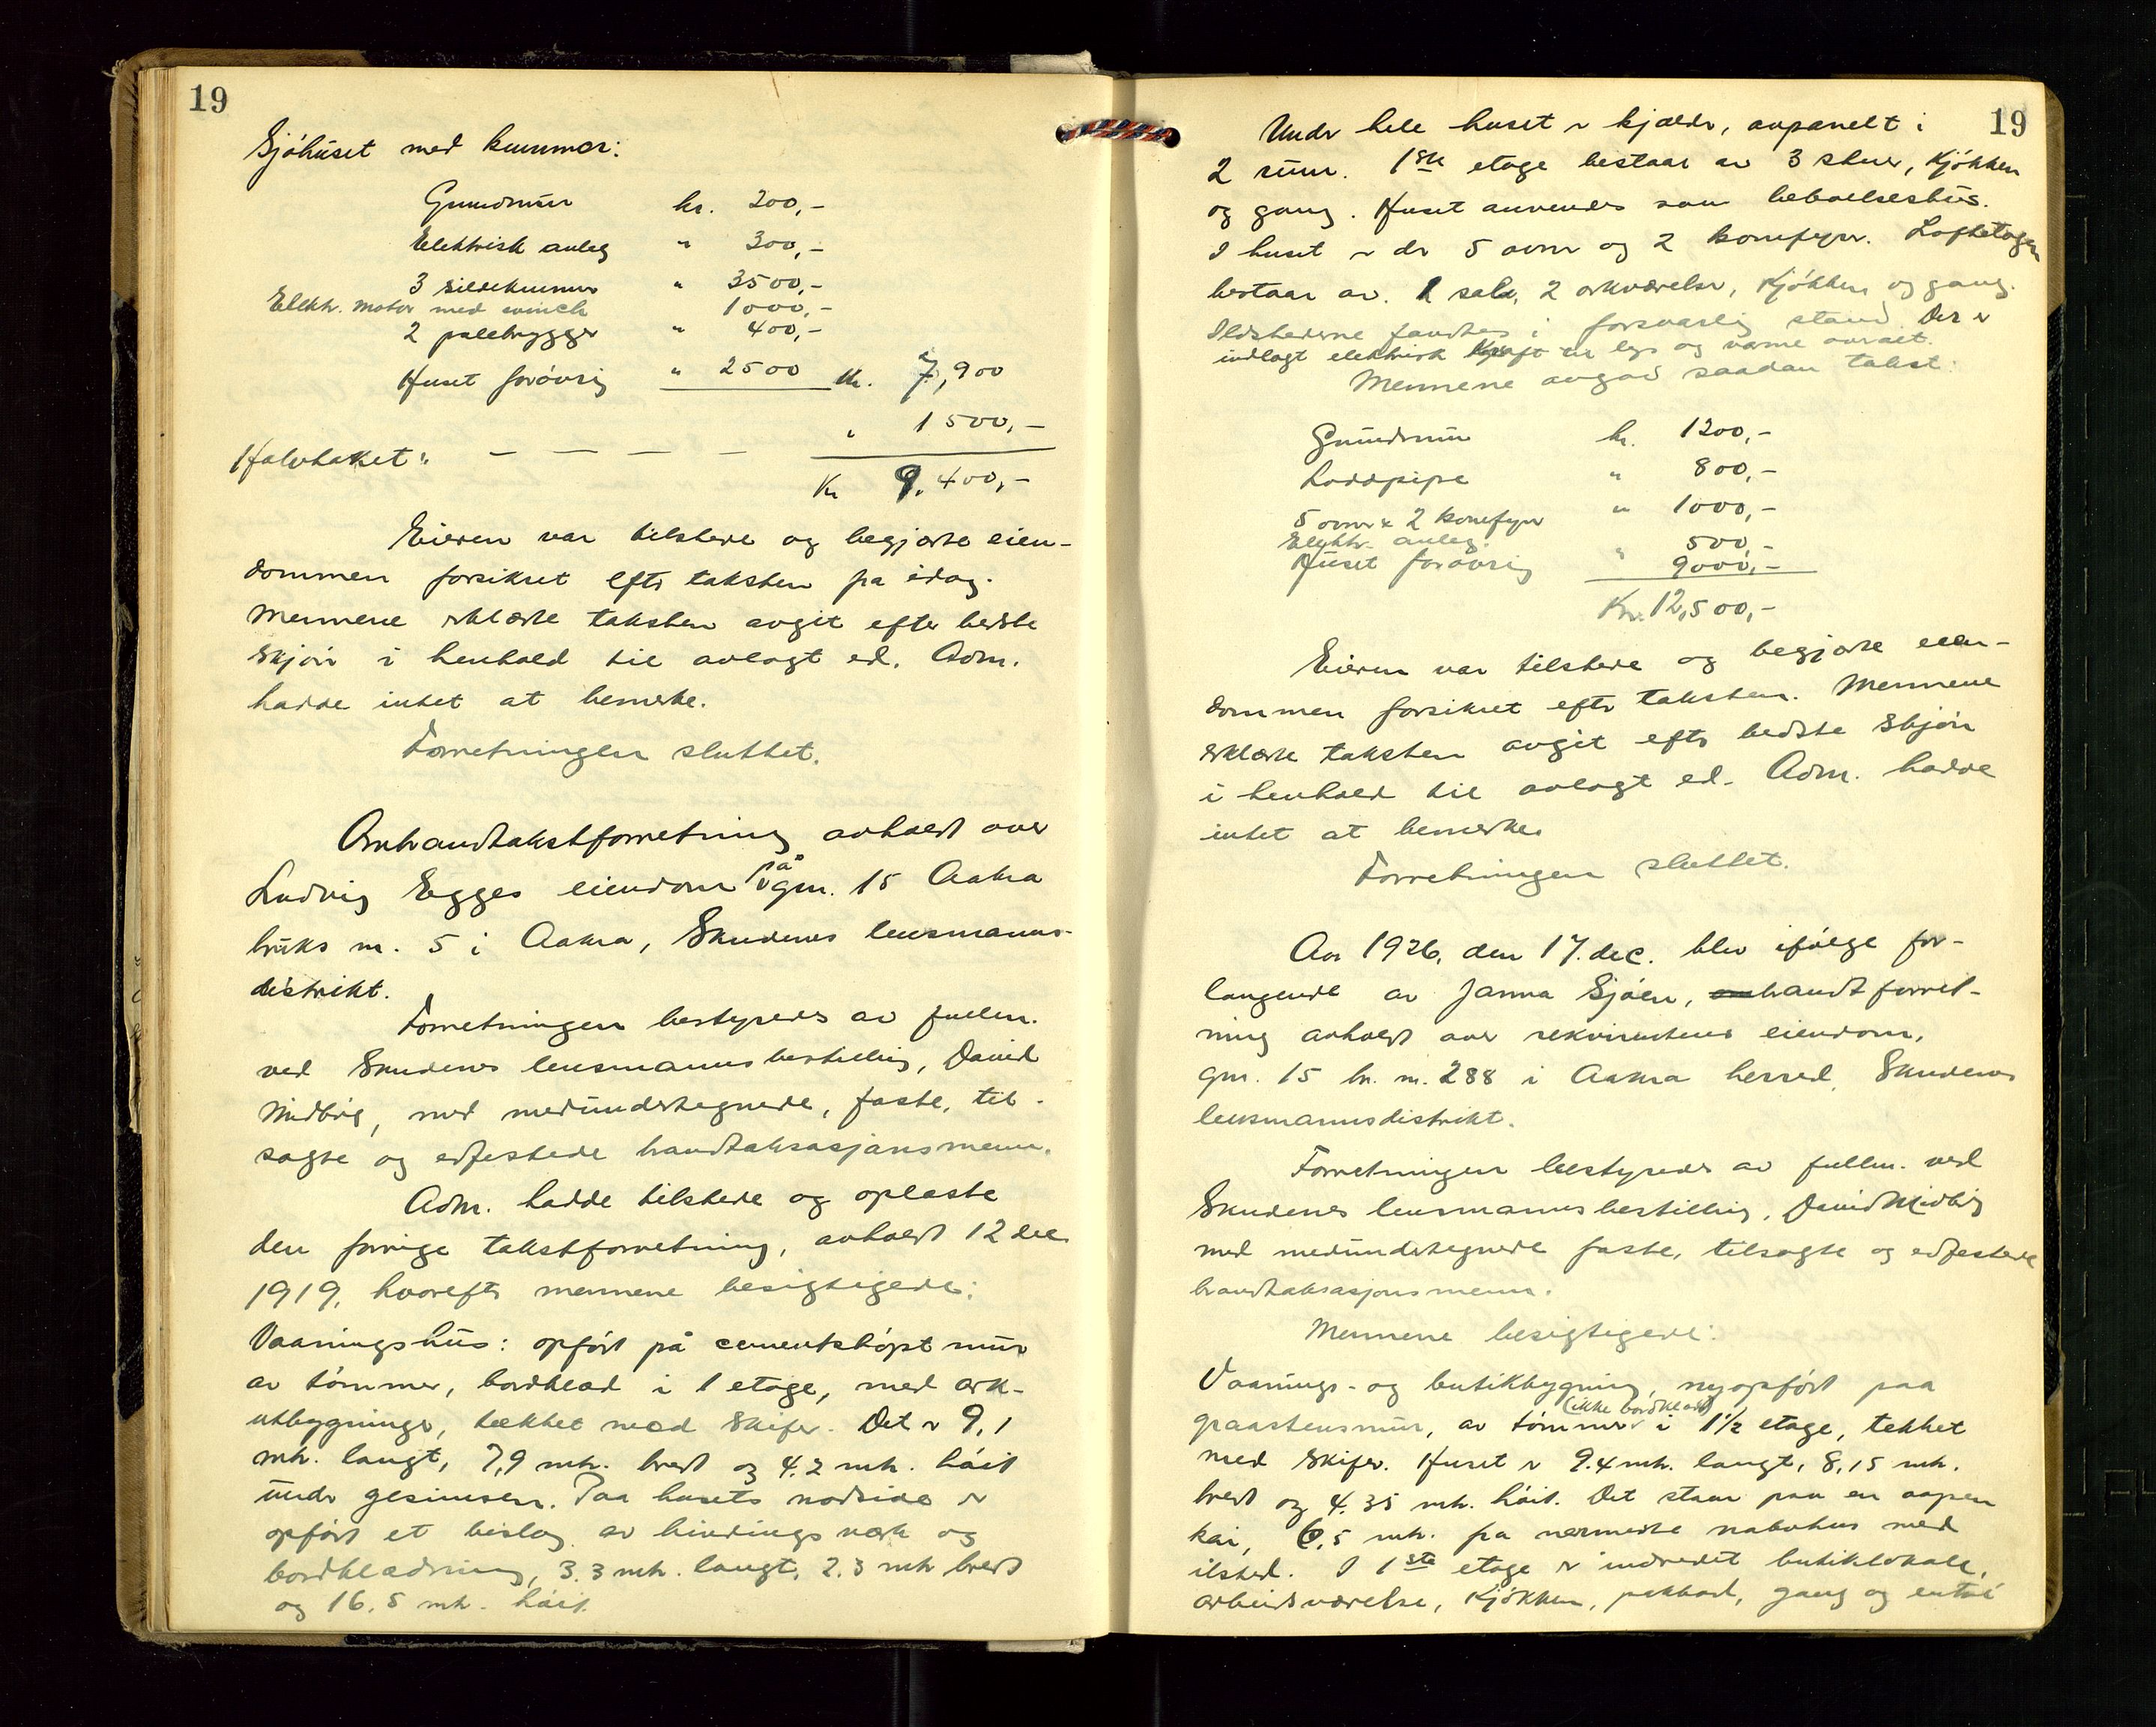 19
Sjöhuset med kummer:
Grundmur kr. 200,-
Elektrisk anleg " 300,-
3 sildekummer " 3500,-
Elektr. motor med winch 1000,-
2 pelebrygger " 400,-
Huset forövrig " 2500 Kr. 7,900
Halvtaket: — — — — " 1500,-
Kr 9.400,-
Eieren var tilstede og begjærte eien-
dommen forsikret efter taksten pa idag.
Mennene erklærte taksten avgit efter bedste
skjön i henhold til avlagt ed. Adm.
hadde intet at bemerke.
Forretningen sluttet.
Ombrandtakstforretning avholdt over
Ludvig Egges eiendom på gnr. 15 Aakra
bruks nr. 5 i Aakra, Skudenes lensmanns-
distrikt.
Forretningen bestyredes av fullm.
ved Skudenes lensmannsbestilling, David
Midbög, med medundertegnede, faste, til-
sagte og edfestede brandtaksasjonsmenn.
Adm. hadde tilstede og oplæste
den forrige takstforretning, avholdt 12 dec
1919, hvorefter mennene besigtigede:
Vaaningshus: opfört på cementstöpt mur
av tömmer, bordklæd i 1 etage, med ark-
utbygninge, tækket med skifer. Det er 9,1
mtr. langt, 7,9 mtr. bredt og 4.2 mtr. höit
under gesimsen. Paa husets nordside er
opfört et bislag av bindingsverk og
bordklædning, 3.3 mtr. langt, 2.3 mtr bredt
og 16.5 mtr. höit.
19
Under hele huset er kjælder, avpanelt i
2 rum. 1ste etage bestaar av 3 stuer, Kjökken
og gang. Huset anvendes som beboelseshus.
I huset er der 5 ovner og 2 komfyrer. Loftetagen
bestaar av. 1 sal, 2 arkværelser, Kjökken og gang.
Ildstederne fandtes i forsvarlig stand. Der er
indlagt elektrisk kraft til lys og varme overalt.
Mennene avgav saadan takst:
Grundmur kr. 1200,-
Loddpipe " 800,-
5 ovner & 2 komfyrer " 1000,-
Elektr. anleg. 500,-
Huset forövrig " 9000,-
Kr. 12,500,-
Eieren var tilstede og begjærte eien-
dommen forsikret efter taksten. Mennene
erklærte taksten avgit efter bedste skjön
i henhold til avlagt ed. Adm. hadde
intet at bemerke.
Forretningen sluttet.
Aar 1926, den 17. dec. blev ifölge for-
langende av Janna Sjöen, brandtforret-
ning avholdt over rekvirentens eiendom,
gnr. 15 br. nr. 288 i Aakra herred, Skudenes
lensmannsdistrikt.
Forretningen bestyredes av fullm. ved
Skudenes lensmannsbestilling, David Midbög
med medundertegnede faste, tilsagte og edfestede
brandtaksasjonsmenn.
Mennene besigtigede:
Vaanings- og butikbygning, nyopfört paa
graastensmur, av tömmer (ikke bordklædt) i 1½ etage, tekket
med skifer. Huset er 9.4 mtr. langt, 8,15 mtr.
bredt og 4.35 mtr. höit. Det staar paa en aapen
kai, 6,5 mtr. fra nærmeste nabohus med
ildsted. I 1ste etage er indredet butiklokale,
arbeidsværelse, Kjökken, pakbod, gang og entré